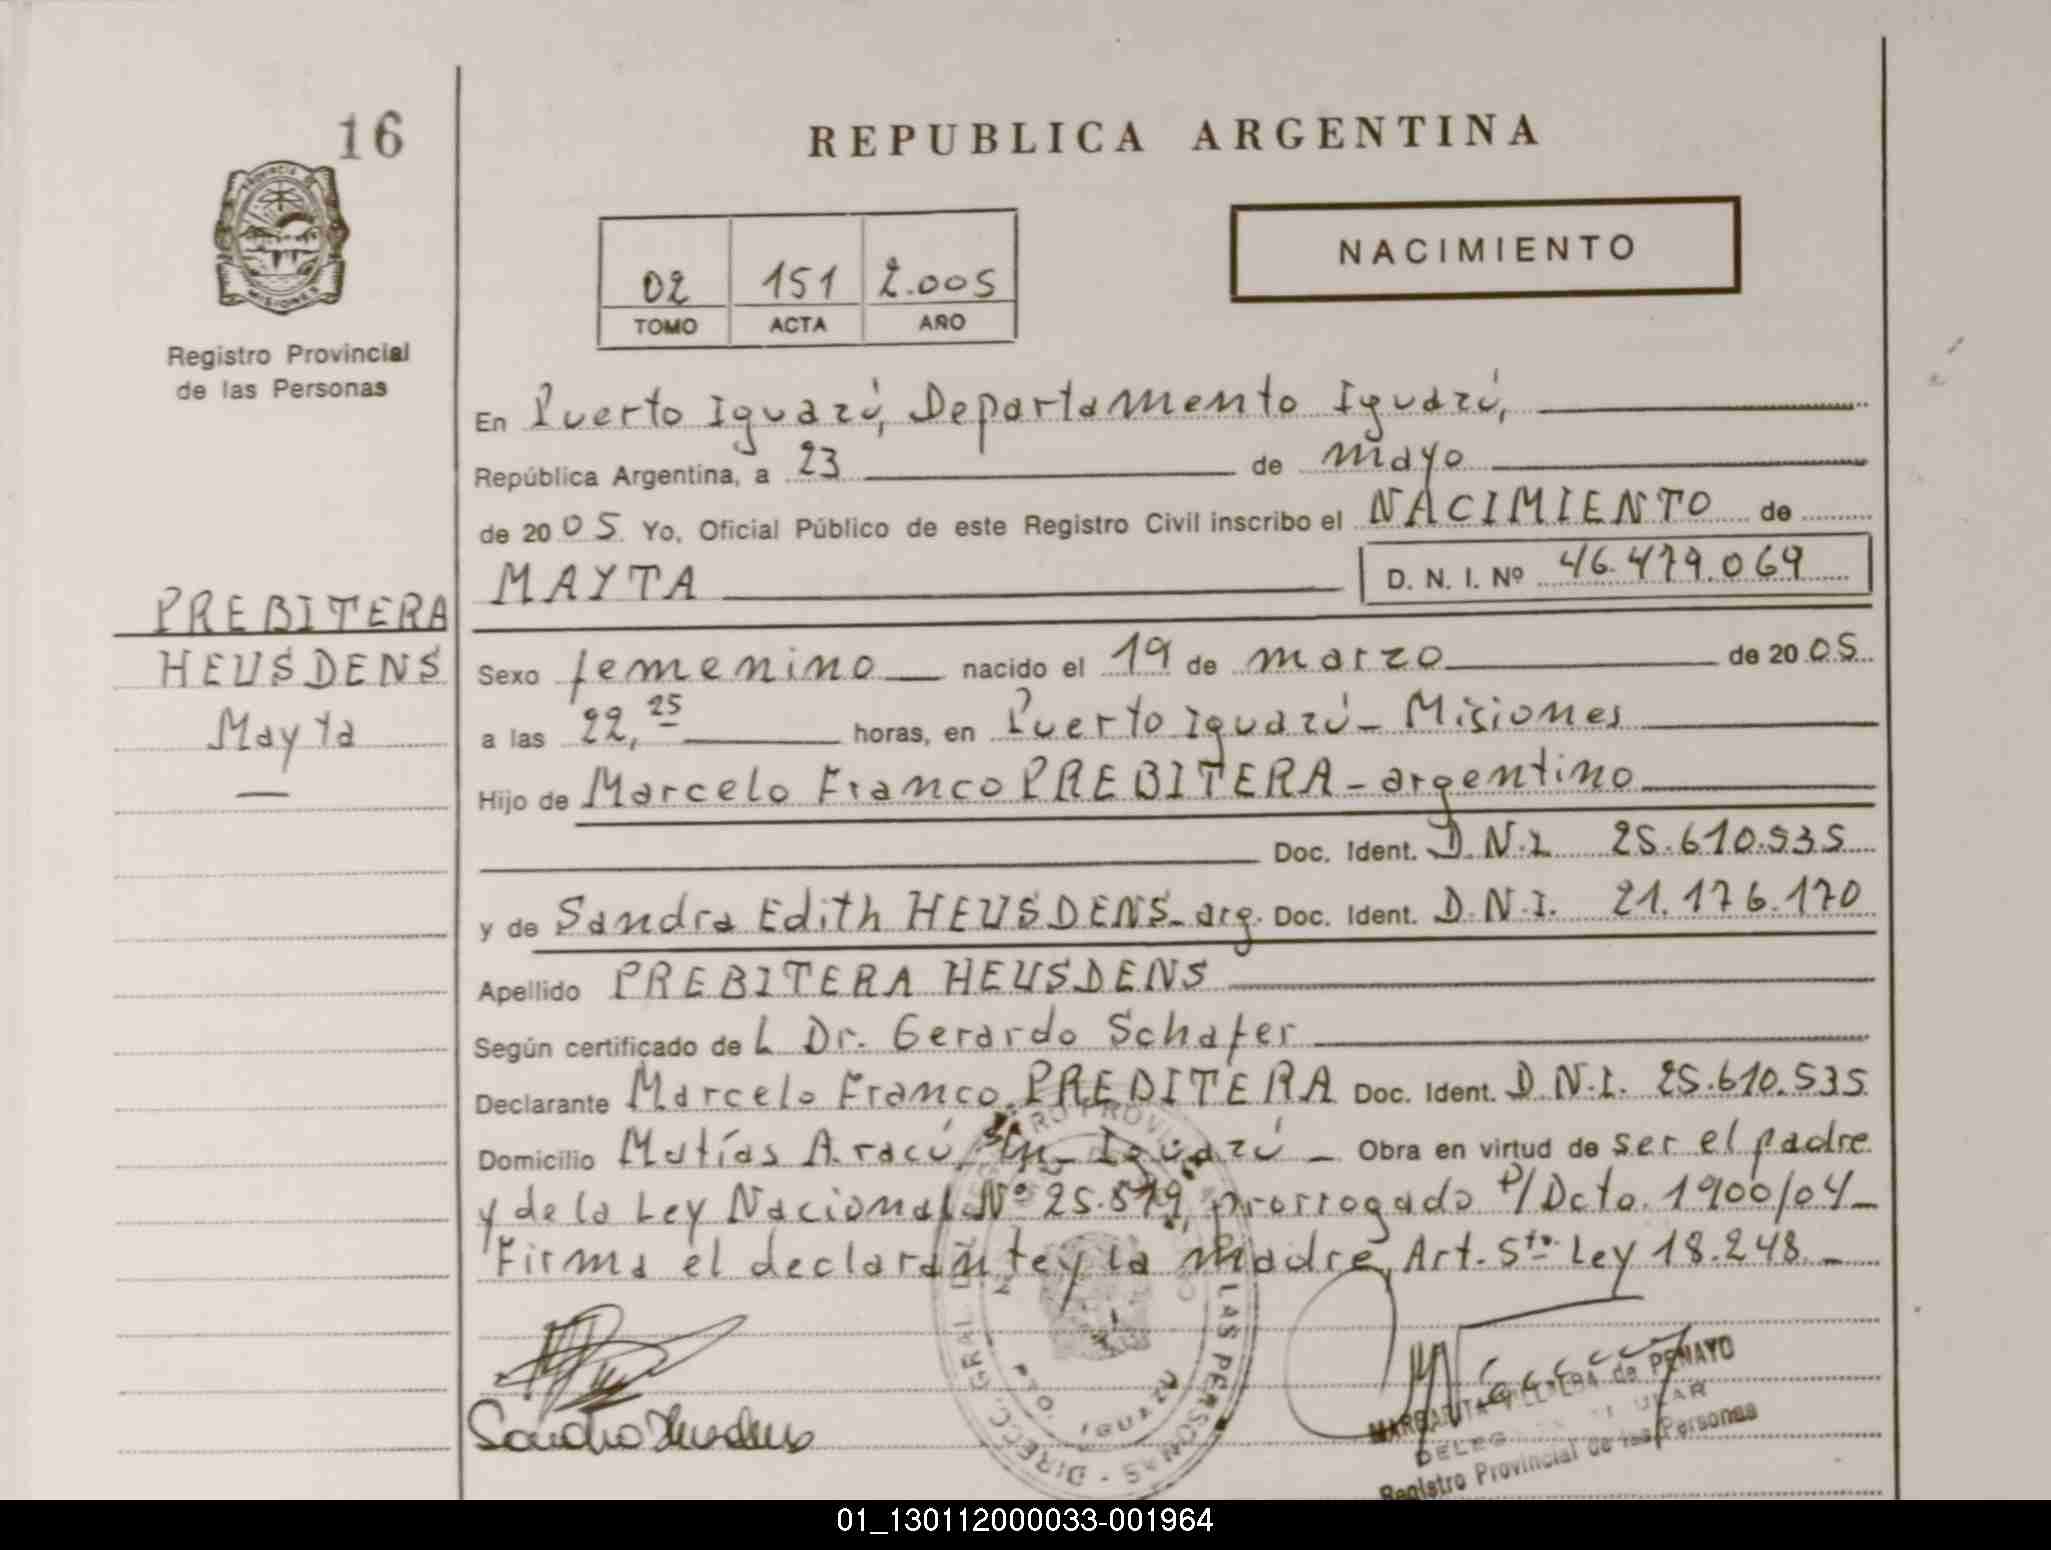 16
REPUBLICA ARGENTINA
PROVINCIA DE
MISIONES
Registro Provincial
de las Personas
NACIMIENTO
02 151 2.005
TOMO ACTA AÑO
En Puerto Iguazú, Departamento Iguazú,
República Argentina, a 23 de mayo
de 2005 Yo, Oficial Público de este Registro Civil inscribo el NACIMIENTO de
MAYTA D. N. I. Nº 46.479.069
PREBITERA
HEUSDENS
Mayta
Sexo femenino nacido el 19 de marzo de 2005
a las 22,25 horas, en Puerto Iguazú - Misiones
Hijo de Marcelo Franco PREBITERA - argentino
Doc. Ident. D.N.I. 25.610.535
y de Sandra Edith HEUSDENS - arg. Doc. Ident. D.N.I. 21.176.170
Apellido PREBITERA HEUSDENS
Según certificado de L Dr. Gerardo Schafer
Declarante Marcelo Franco PREBITERA Doc. Ident. D.N.I. 25.610.535
Domicilio Matías Aracú, S/n - Iguazú - Obra en virtud de ser el padre
y de la Ley Nacional Nº 25.819, prorrogado P/Dcto. 1900/04 -
Firma el declarante y la madre, Art. 5to. Ley 18.248. -
Sandra Heusdens
DIREC. GRAL. DEL REGISTRO PROVINCIAL DE LAS PERSONAS
PTO. IGUAZU
MARGARITA VILLALBA de PENAYO
Registro Provincial de las Personas
01_130112000033-001964